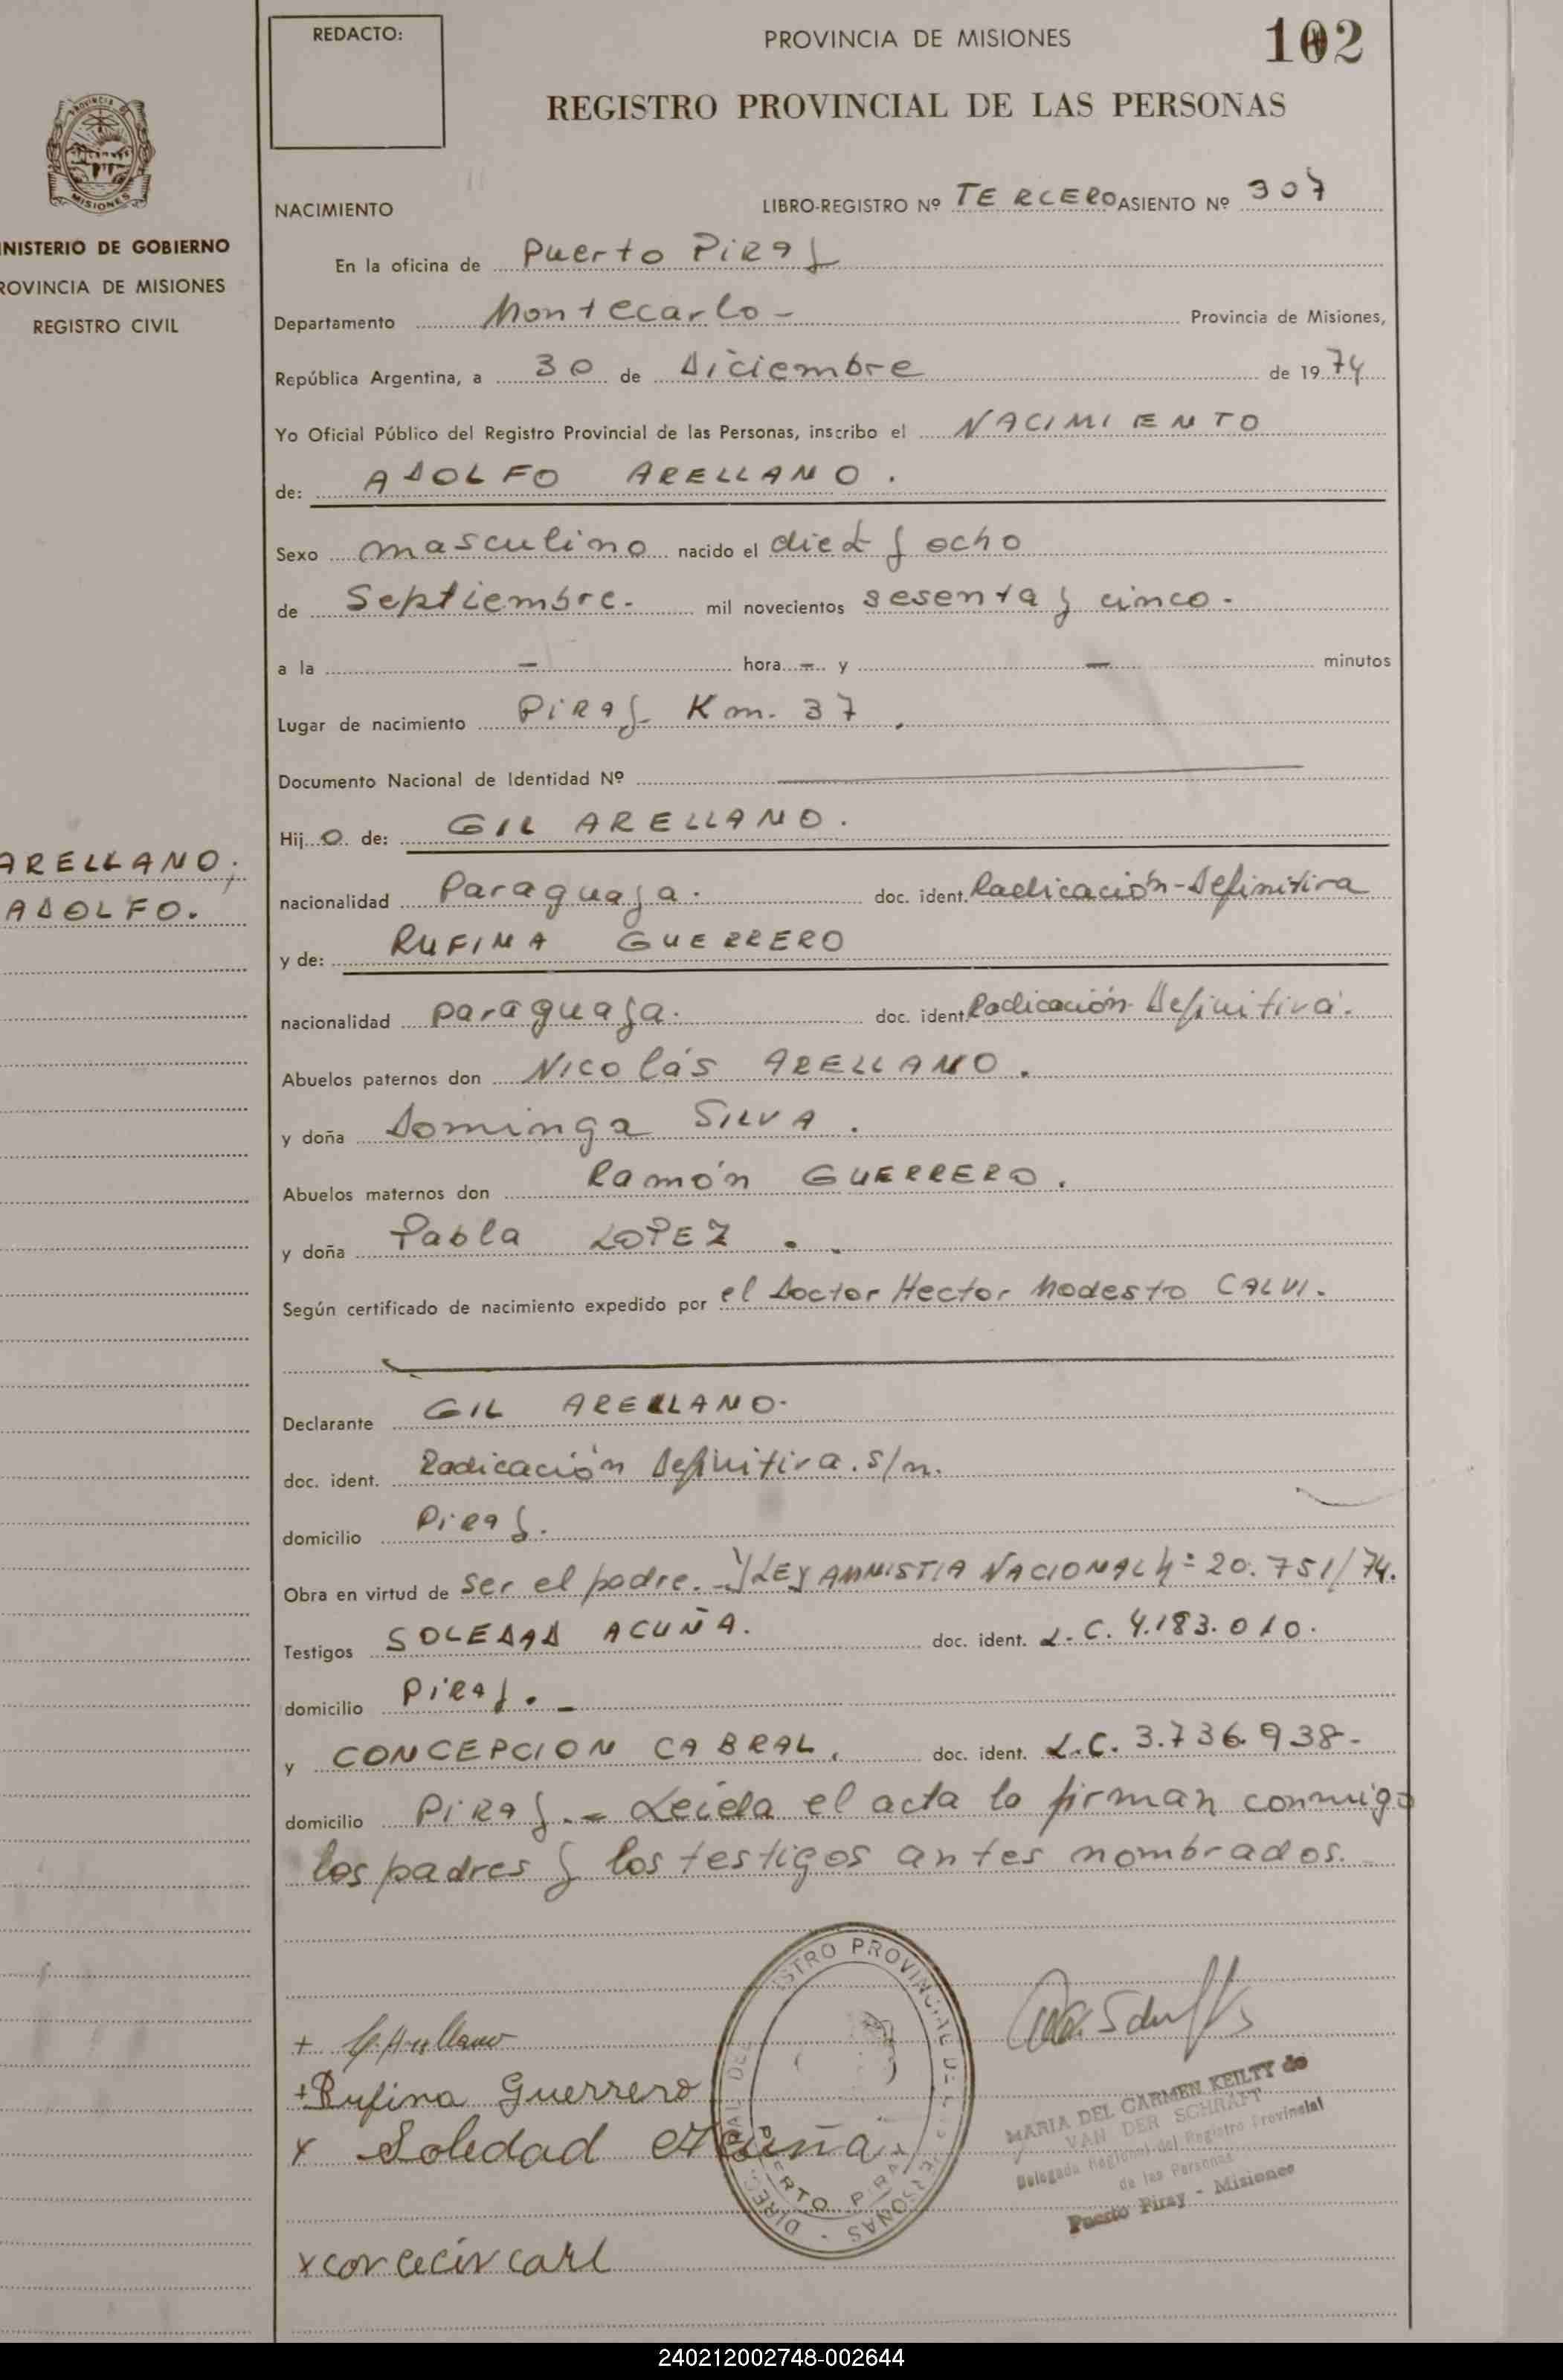 REDACTO:
PROVINCIA DE MISIONES
102
REGISTRO PROVINCIAL DE LAS PERSONAS
MISIONES
INISTERIO DE GOBIERNO
ROVINCIA DE MISIONES
REGISTRO CIVIL
ARELLANO,
ADOLFO.
NACIMIENTO LIBRO-REGISTRO Nº TERCERO ASIENTO Nº 307
En la oficina de Puerto Piray
Departamento Montecarlo - Provincia de Misiones,
República Argentina, a 30 de Diciembre de 1974
Yo Oficial Público del Registro Provincial de las Personas, inscribo el NACIMIENTO
de: ADOLFO ARELLANO.
Sexo masculino nacido el diez y ocho
de Septiembre. mil novecientos sesenta y cinco.
a la — hora — y — minutos
Lugar de nacimiento Piray Km. 37.
Documento Nacional de Identidad Nº
Hijo de: GIL ARELLANO.
nacionalidad Paraguaya. doc. ident. Radicación-Definitiva
y de: RUFINA GUERRERO
nacionalidad paraguaya. doc. ident. Radicación Definitiva.
Abuelos paternos don Nicolás ARELLANO.
y doña Dominga SILVA.
Abuelos maternos don Ramón GUERRERO.
y doña Pabla LOPEZ .
Según certificado de nacimiento expedido por el Doctor Hector Modesto CALVI.
Declarante GIL ARELLANO.
doc. ident. Radicación Definitiva. s/n.
domicilio Piray.
Obra en virtud de ser el padre. - y LEY AMNISTIA NACIONAL Nº 20.751/74.
Testigos SOLEDAD ACUÑA. doc. ident. L.C. 4.183.010.
domicilio Piray. -
y CONCEPCION CABRAL, doc. ident. L.C. 3.736.938-
domicilio Piray. - Leída el acta la firman conmigo
los padres y los testigos antes nombrados.
+ G. Arellano
+ Rufina Guerrero
x Soledad Acuña
MARIA DEL CARMEN KEILTY de
VAN DER SCHRAFT
Delegada Regional del Registro Provincial
de las Personas
Puerto Piray - Misiones
240212002748-002644